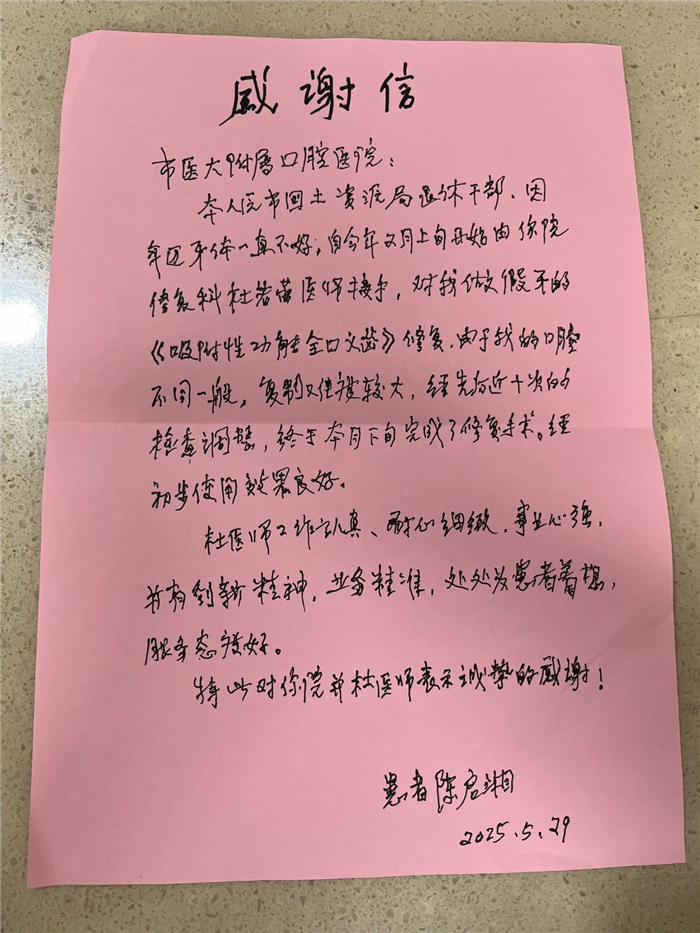 感谢信
市医大附属口腔医院：
本人民市国土资源局退休干部，因
年迈牙体一直不好；自今年2月上旬开始由你院
修复科杜若蕾医师接手，对我做假牙的
《吸附性功能全口义齿》修复，由于我的口腔
不同一般，复制难度较大，经先后近十次的
检查调整，终于本月下旬完成了修复手术。经
初步使用效果良好。
杜医师工作认真、耐心细致，事业心强，
并有创新精神，业务精准，处处为患者着想，
服务态度好。
特此对你院并杜医师表示诚挚的感谢！
患者 陈启湘
2025.5.29